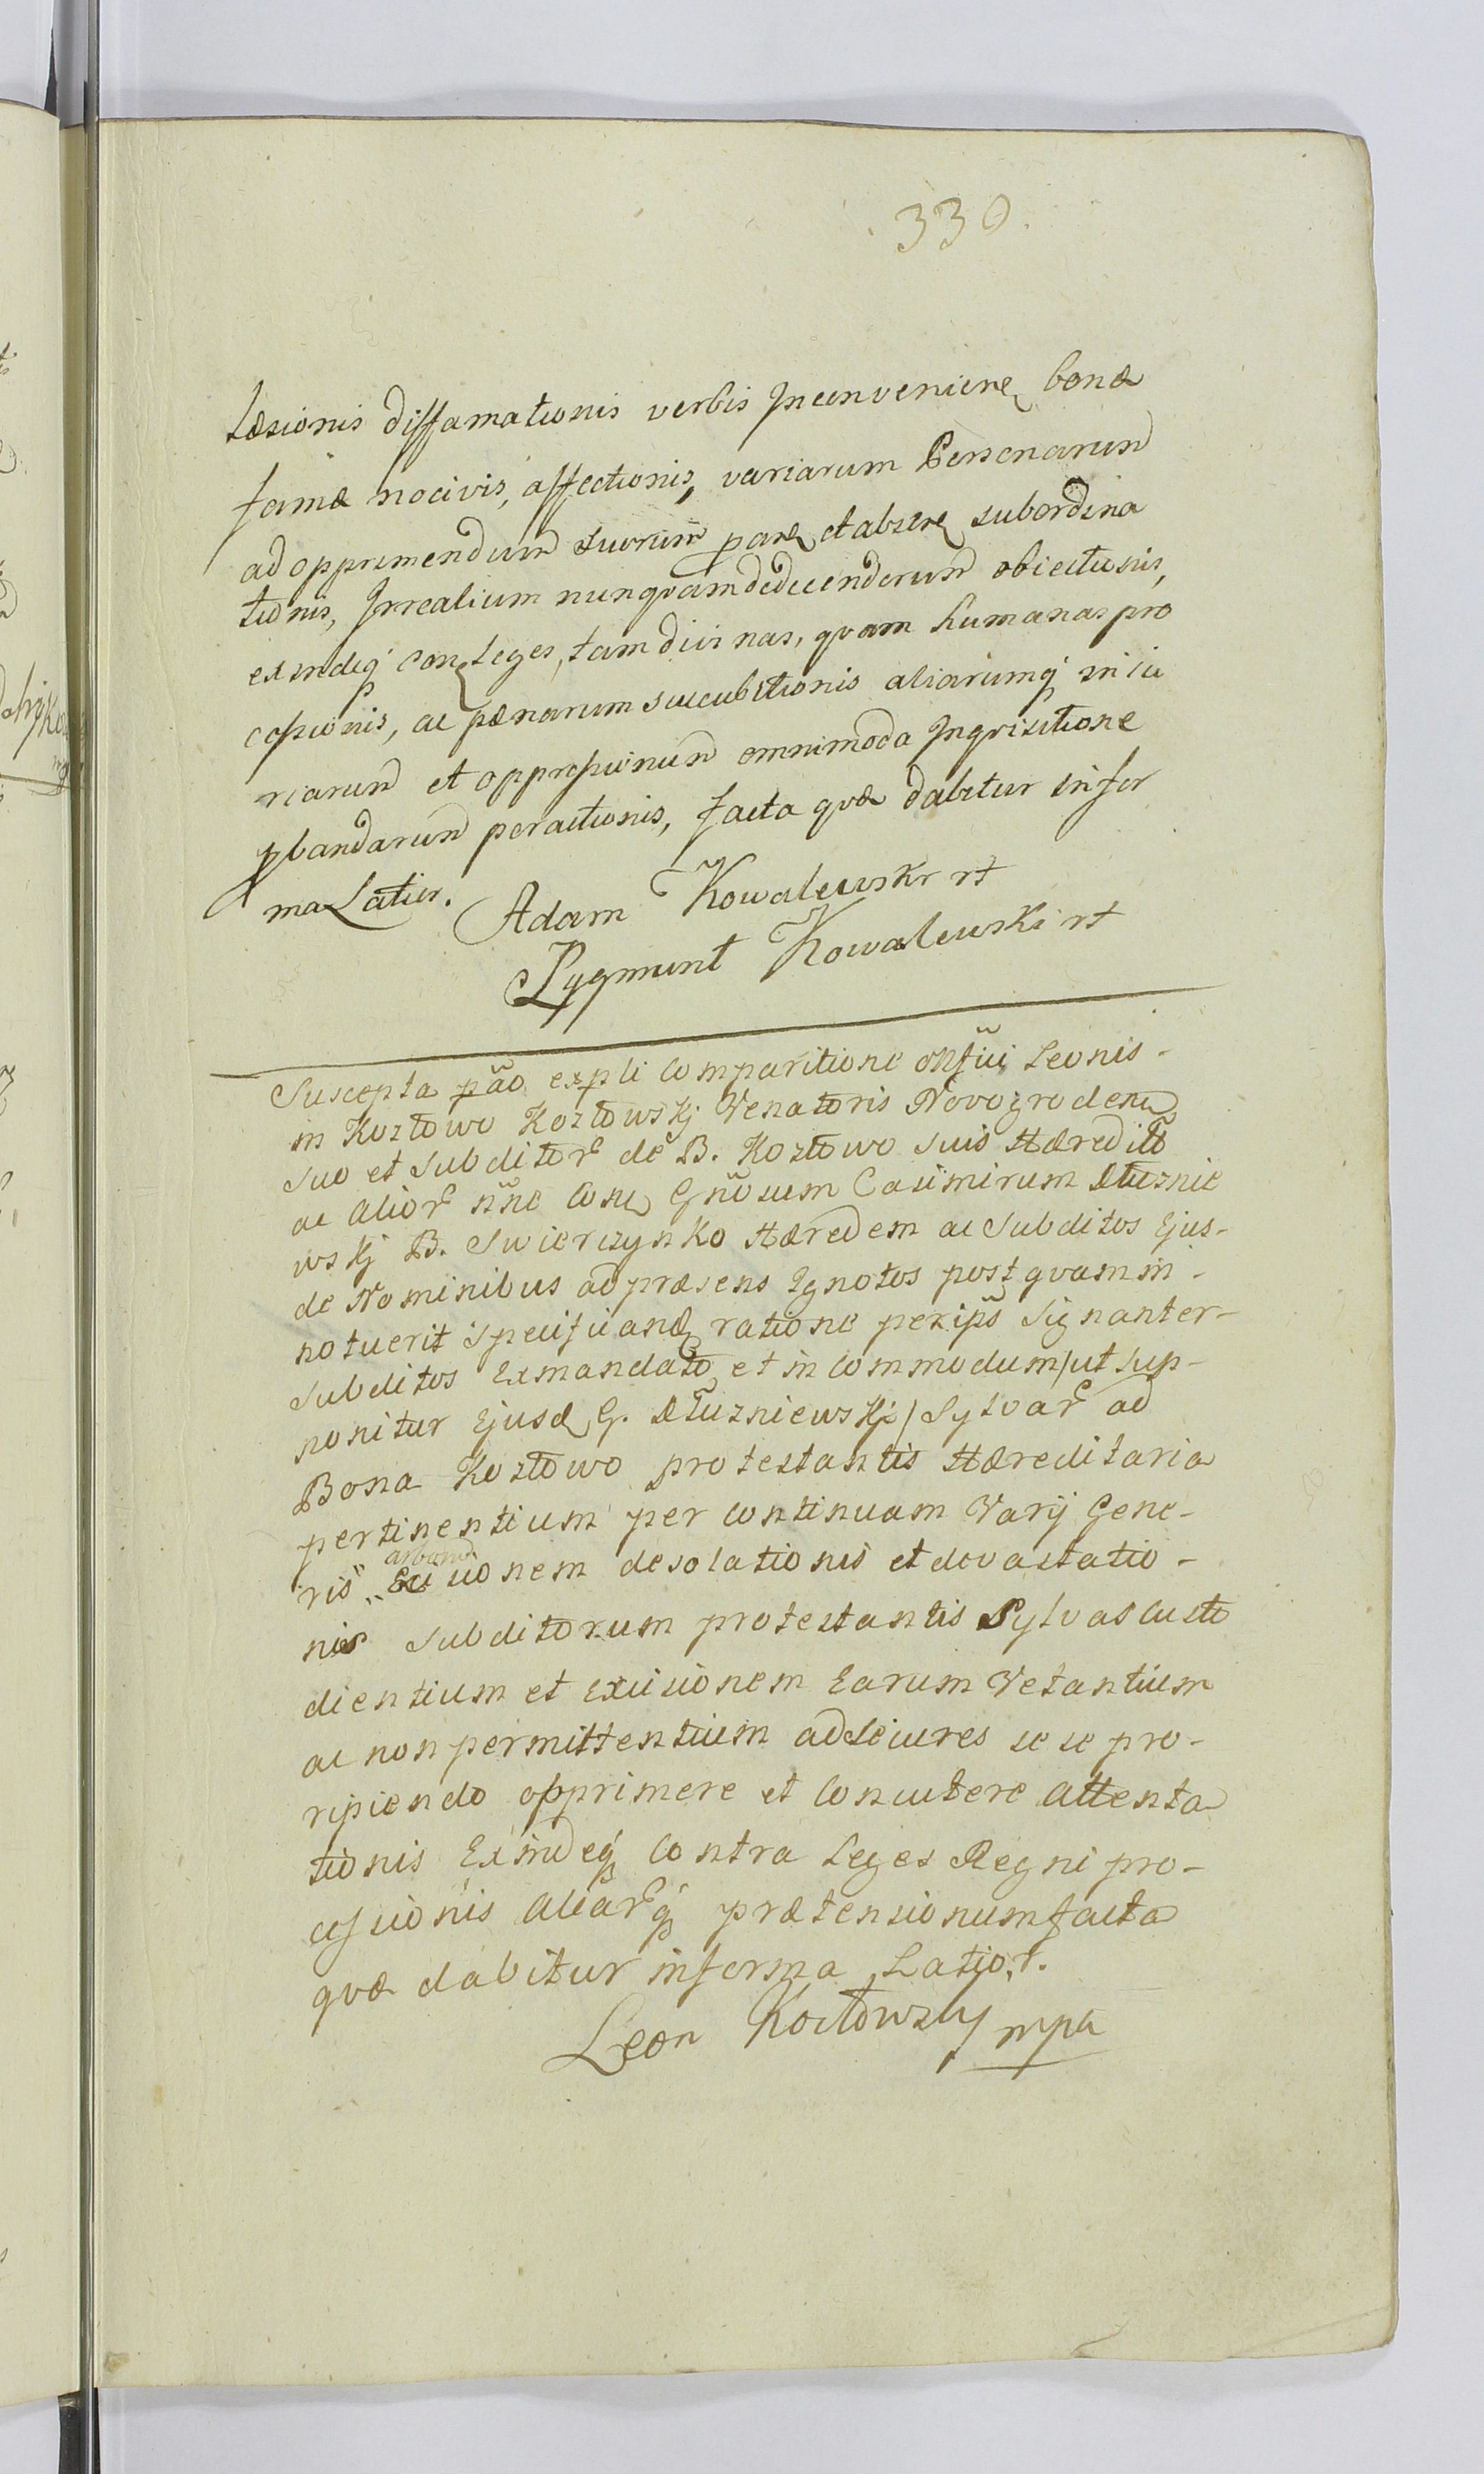 330.
Læsionis diffamationis verbis Inconvenien bonæ
famæ nocivis, affectionis, variarum Personarum
ad opprimendum suorum paren et absen subordina
tionis, Irrealium nunqvam dedecendorum obiectionis,
exindeq con Leges, tam divinas, qvam humanas pro
cessionis, ac pænarum succubitionis aliarumq iniu
riarum et oppressionum omnimoda Inqvisitione
pbandarum peractionis, facta qvæ dabitur infor
ma Latior.
Adam Kowalewski rt
Zygmunt Kowalewski rt
Suscepta pão expli Comparitione Leonis -
in Kozłowo Kozłowskj Venatoris Novogroden
suo et subditor de B. Kozłowo suis Hæredit
ac alior nne Con Gnõsum Casimirum Dłuznie
wskj B. Swierczynko Hæredem ac Subditos Ejus-
de Nominibus ad præsens Ignotos postqvam in-
notuerit specifican ratione per ips Signanter-
subditos Ex mandato et in Commodum/ut sup-
ponitur Ejusd G. Dłuzniewskj/ Sylvar ad
Bona Kozłowo protestantis Hæreditaria
pertinentium per continuam Varij Gene-
arborum
ris Excisionem desolationis et devastatio-
nis subditorum protestantis Sylvas custo
dientium et Excisionem Earum Vetantium
ac non permittentium ad Secures se se pro-
ripiendo opprimere et Concutere attenta
tionis Exindeq Contra Leges Regni pro-
cessionis aliarq prætensionum facta
qvæ dabitur in forma Latiori.
Leon Kozłowsky mpa